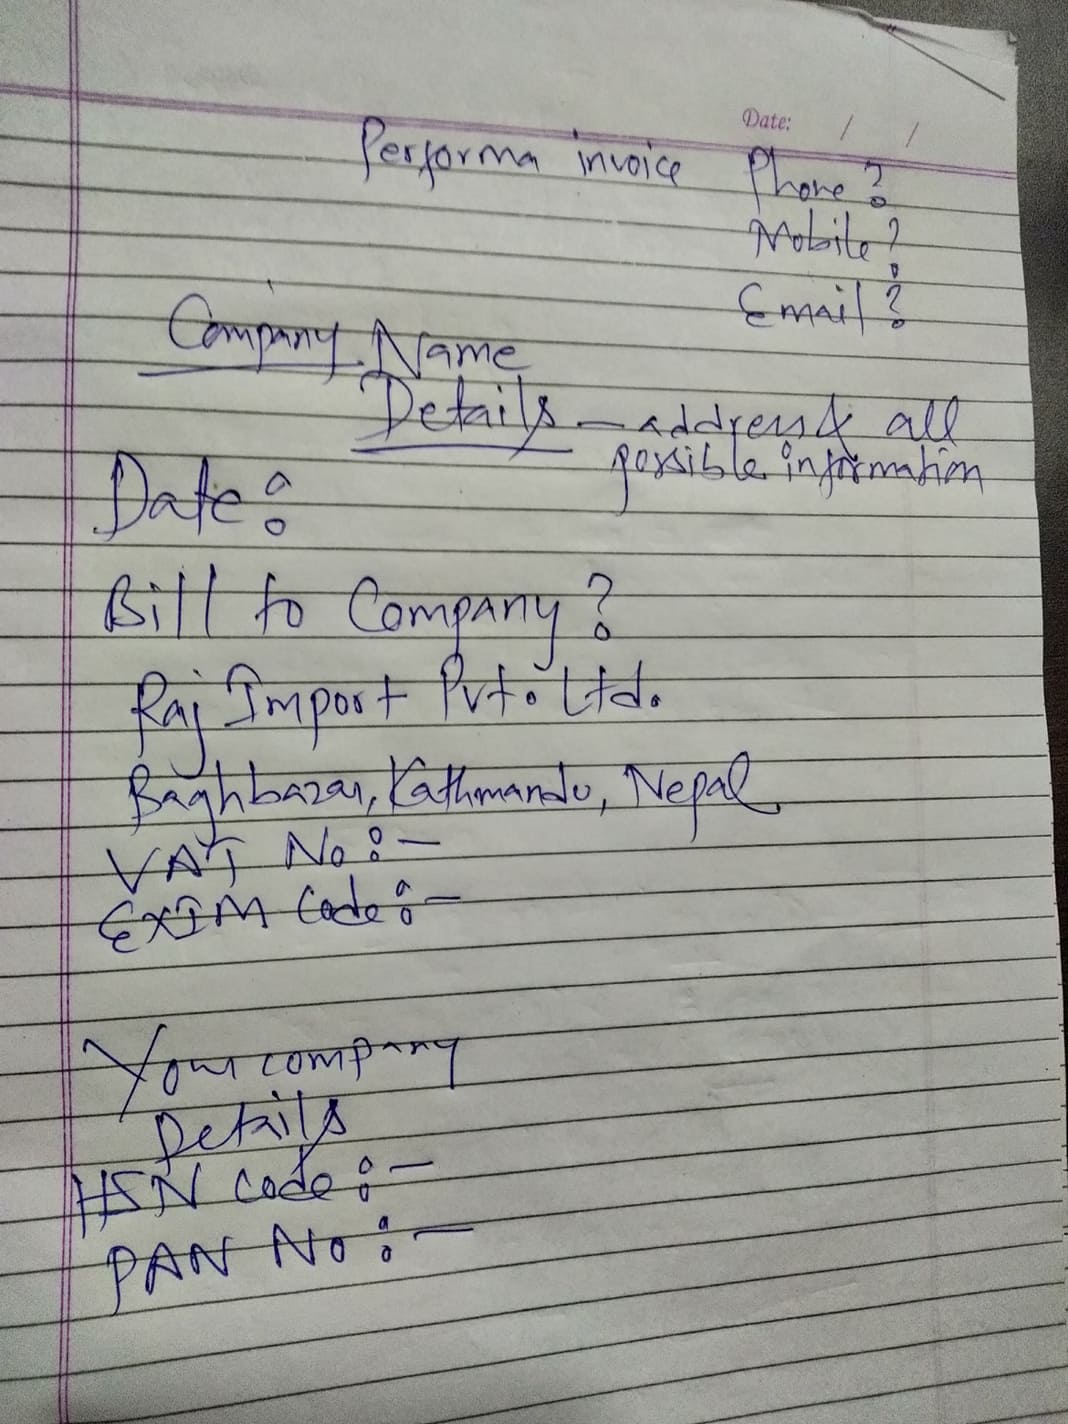 Date: / /
Performa invoice
Phone:
Mobile:
Email:
Company Name
Details - address & all
possible information
Date:
Bill to Company?
Raj Import Pvt. Ltd.
Baghbazar, Kathmandu, Nepal
VAT No:-
EXIM Code:-
Your company
Details
HSN Code:-
PAN No:-